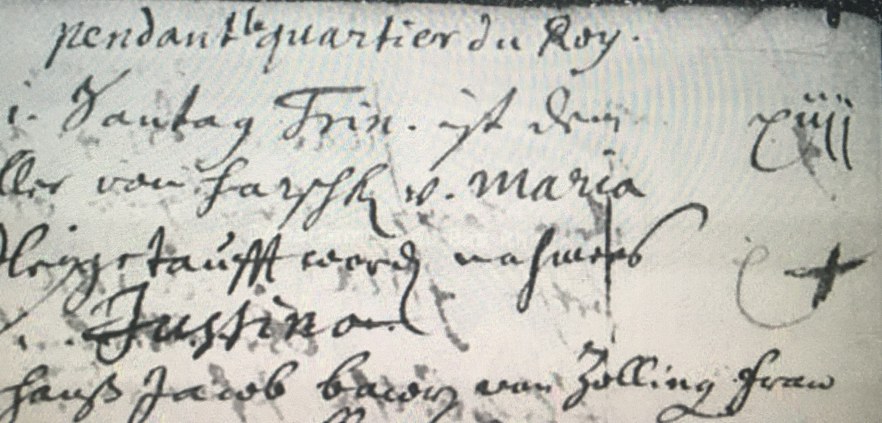 pendant le quartier du Roy.
1. Sontag Trin. ist dem xiiij
ller von harschk v. Maria
getaufft word nahmens
Justina
hanß Jacob bawrs von Zolling fraw